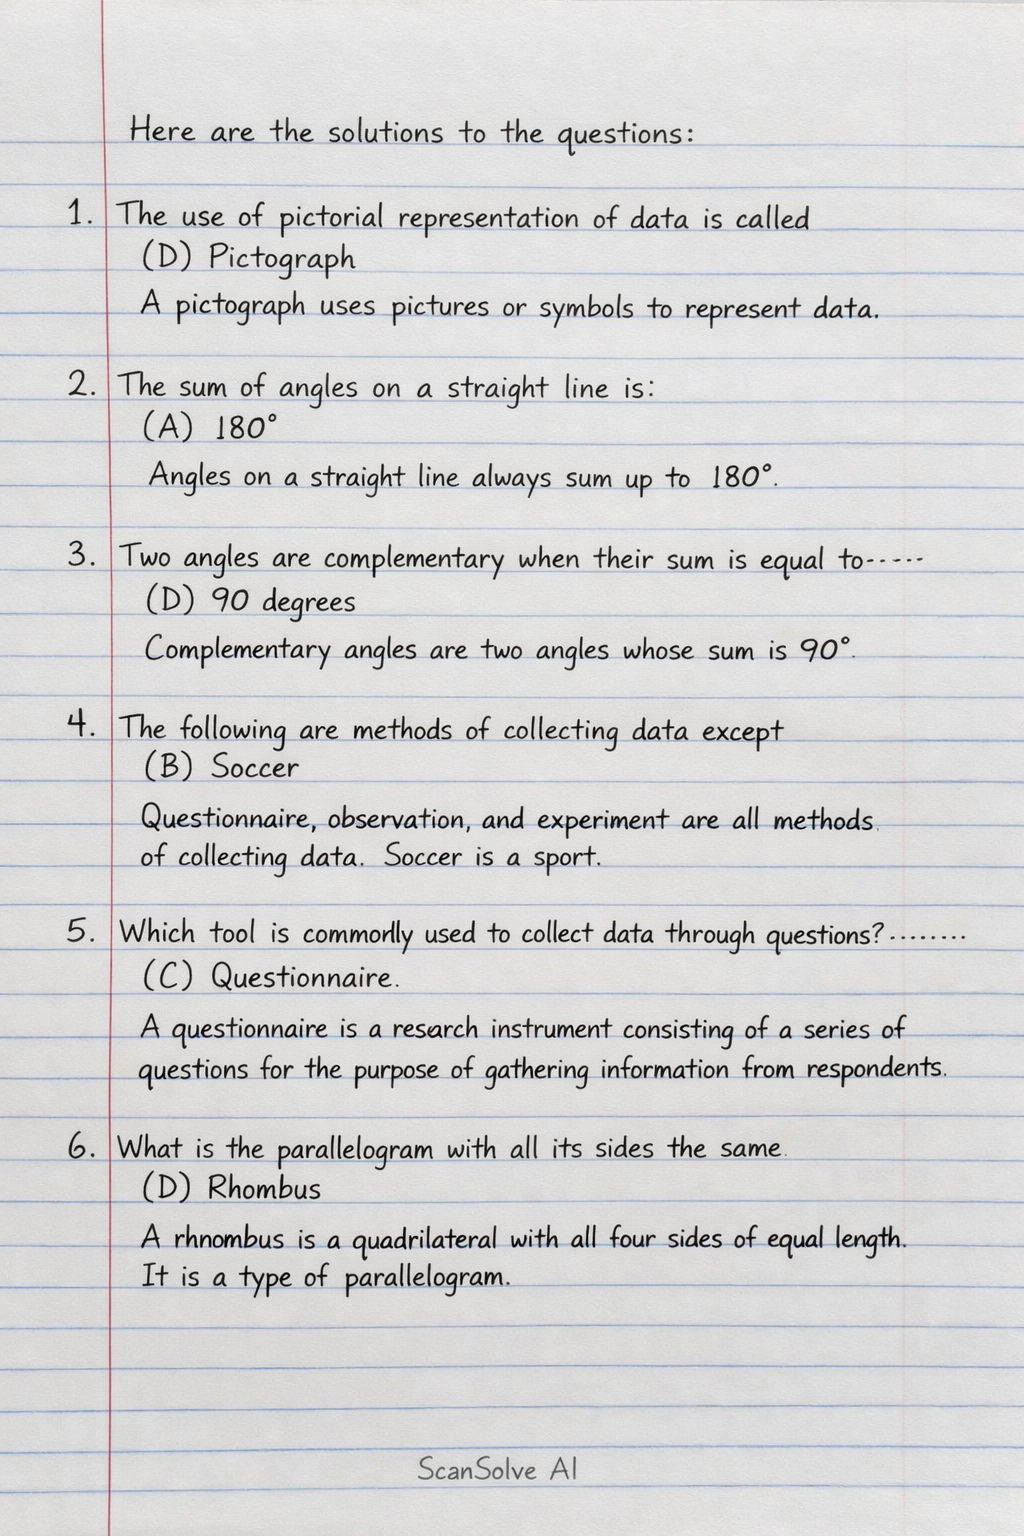 Here are the solutions to the questions:
1. The use of pictorial representation of data is called
(D) Pictograph
A pictograph uses pictures or symbols to represent data.
2. The sum of angles on a straight line is:
(A) 180°
Angles on a straight line always sum up to 180°.
3. Two angles are complementary when their sum is equal to-----
(D) 90 degrees
Complementary angles are two angles whose sum is 90°.
4. The following are methods of collecting data except
(B) Soccer
Questionnaire, observation, and experiment are all methods.
of collecting data. Soccer is a sport.
5. Which tool is commonly used to collect data through questions?........
(C) Questionnaire.
A questionnaire is a research instrument consisting of a series of
questions for the purpose of gathering information from respondents.
6. What is the parallelogram with all its sides the same.
(D) Rhombus
A rhnombus is a quadrilateral with all four sides of equal length.
It is a type of parallelogram.
ScanSolve AI